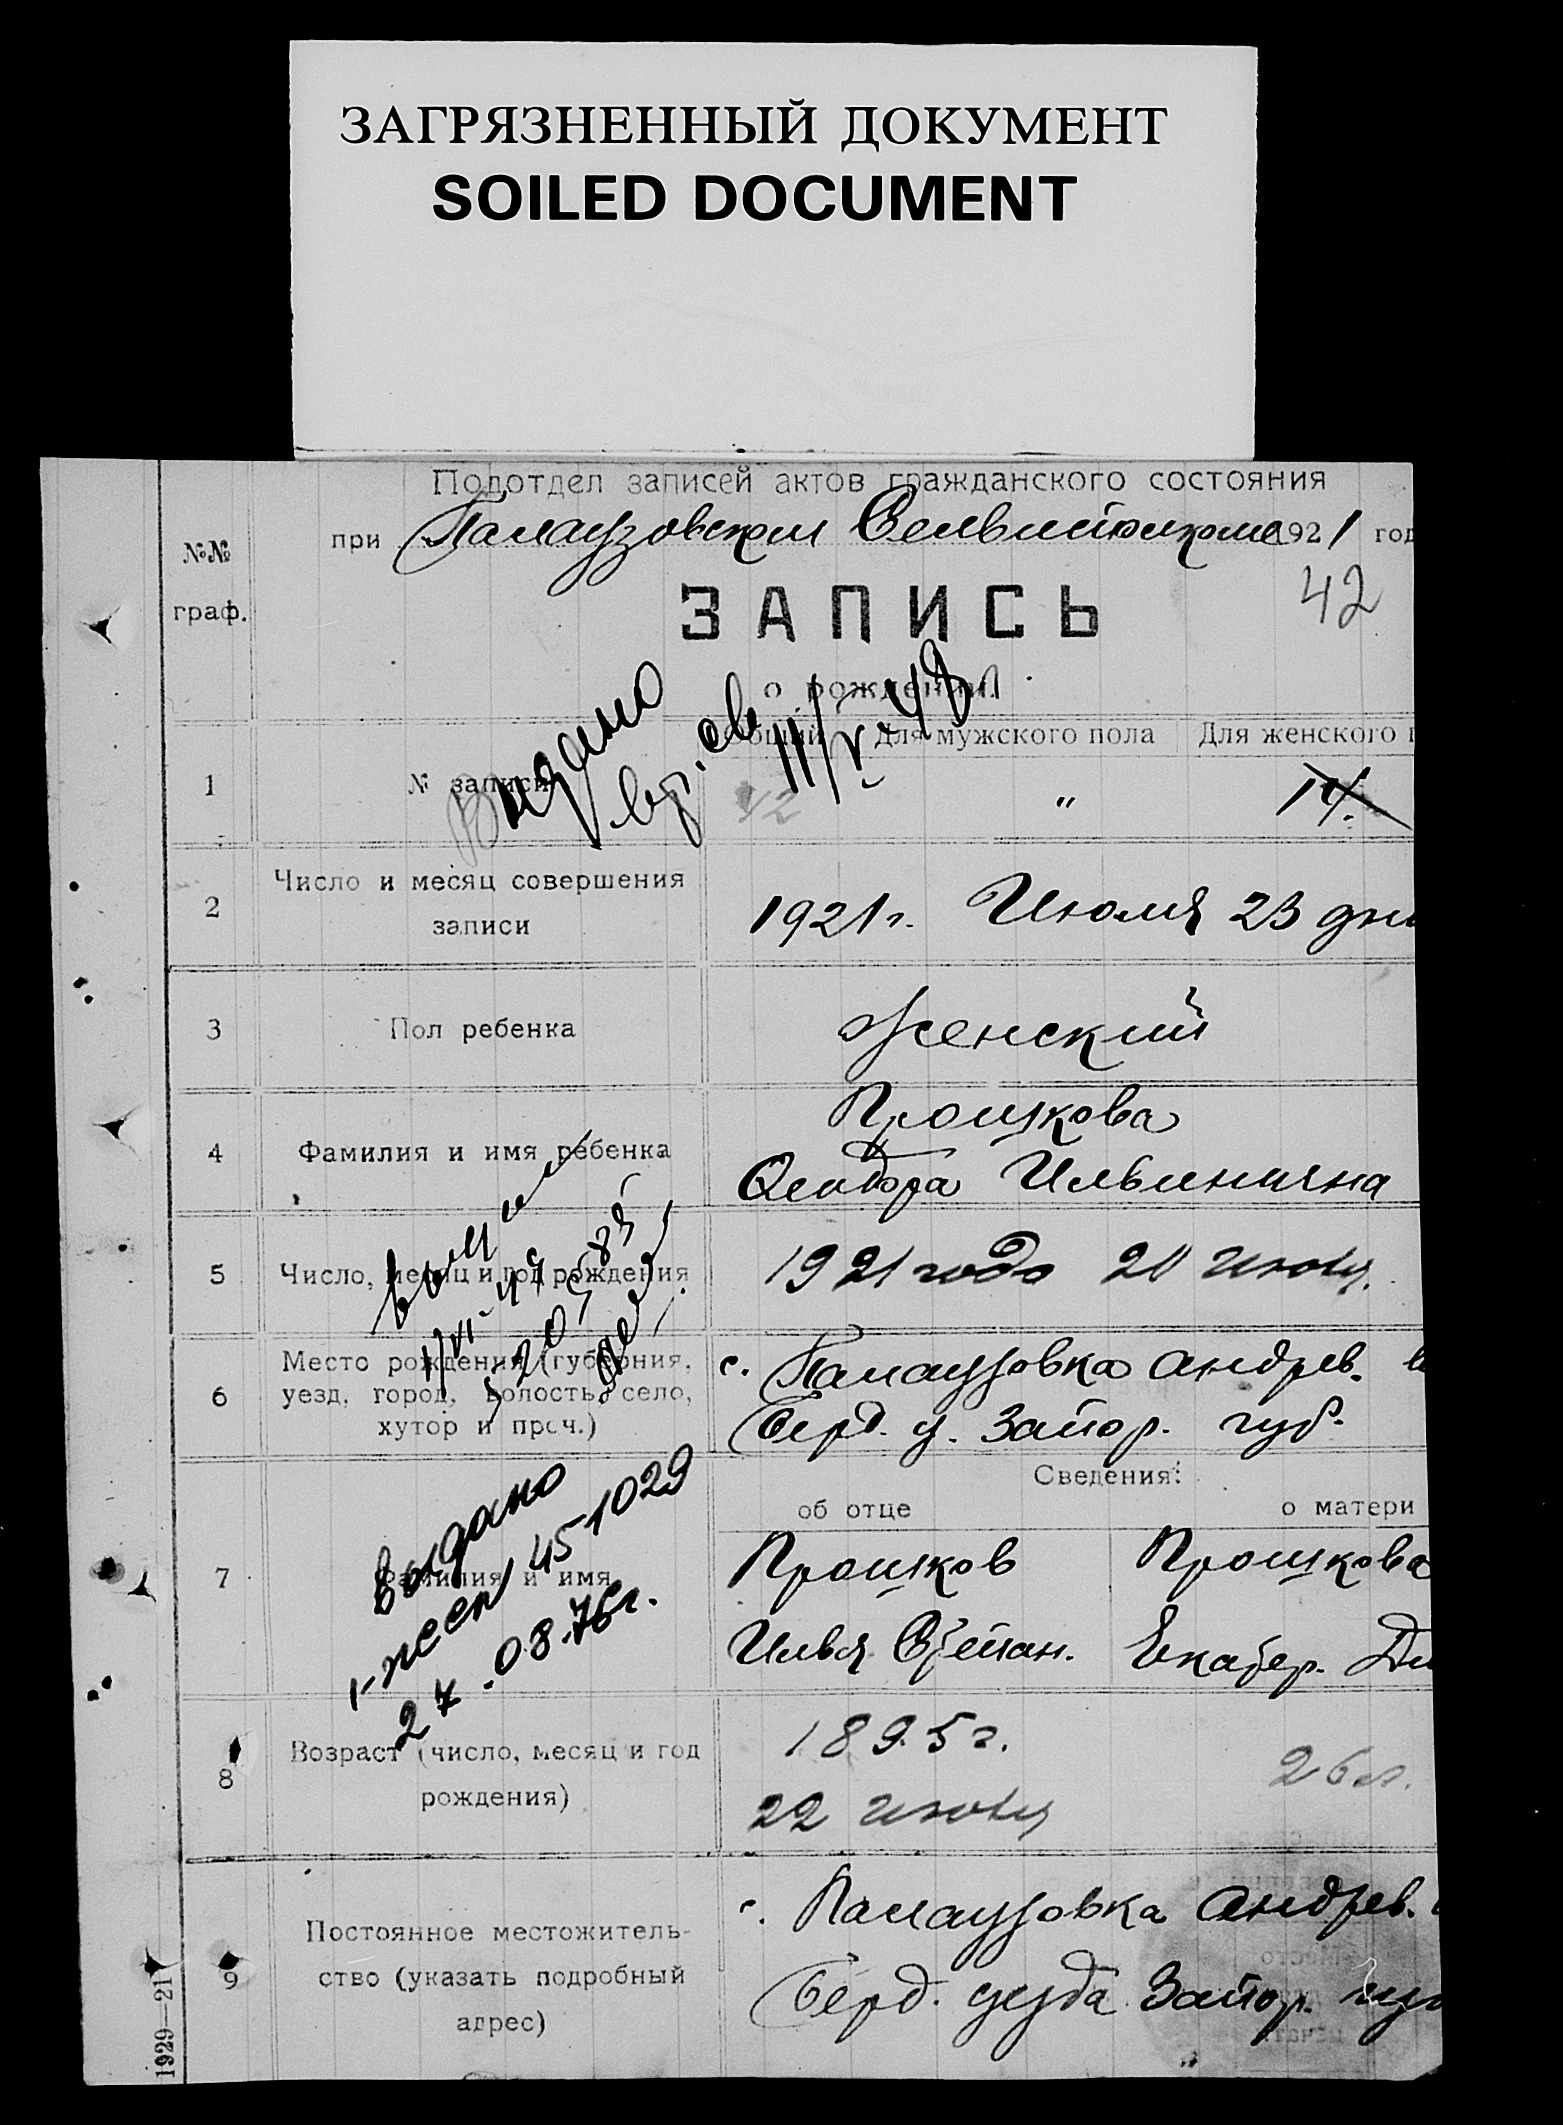 ЗАГРЯЗНЕННЫЙ ДОКУМЕНТ
SOILED DOCUMENT
Подотдел записей актов гражданского состояния
при Палаузовском 1921 год
№№
граф.
42
ЗАПИСЬ
о рождении.
Общий Для мужского пола Для женского п
1 № записи 42 " 14.
Выдано
вр. св.
11/V-48
2 Число и месяц совершения
записи
1921 г. Июля 23 дня
3 Пол ребенка Женский
4 Фамилия и имя ребенка
Прошкова
Феодора Ильинична
5 Число, месяц и год рождения 1921 года 20 июля.
6 Место рождения (губерния,
уезд, город, волость, село,
хутор и проч.)
с. Палаузовка Андрев. в
Берд. у. Запор. губ.
Сведения:
об отце о матери
7 Фамилия и имя
Прошков Прошкова
Илья Степан. Екатер. Дм
выдано
1-жеен 45-1029
27.08.76г.
8 Возраст (число, месяц и год
рождения)
1895 г. 26 л.
22 июля
9 Постоянное местожитель-
ство (указать подробный
адрес)
с. Палаузовка Андрев. в
Берд. уезда Запор. губ
1929—21